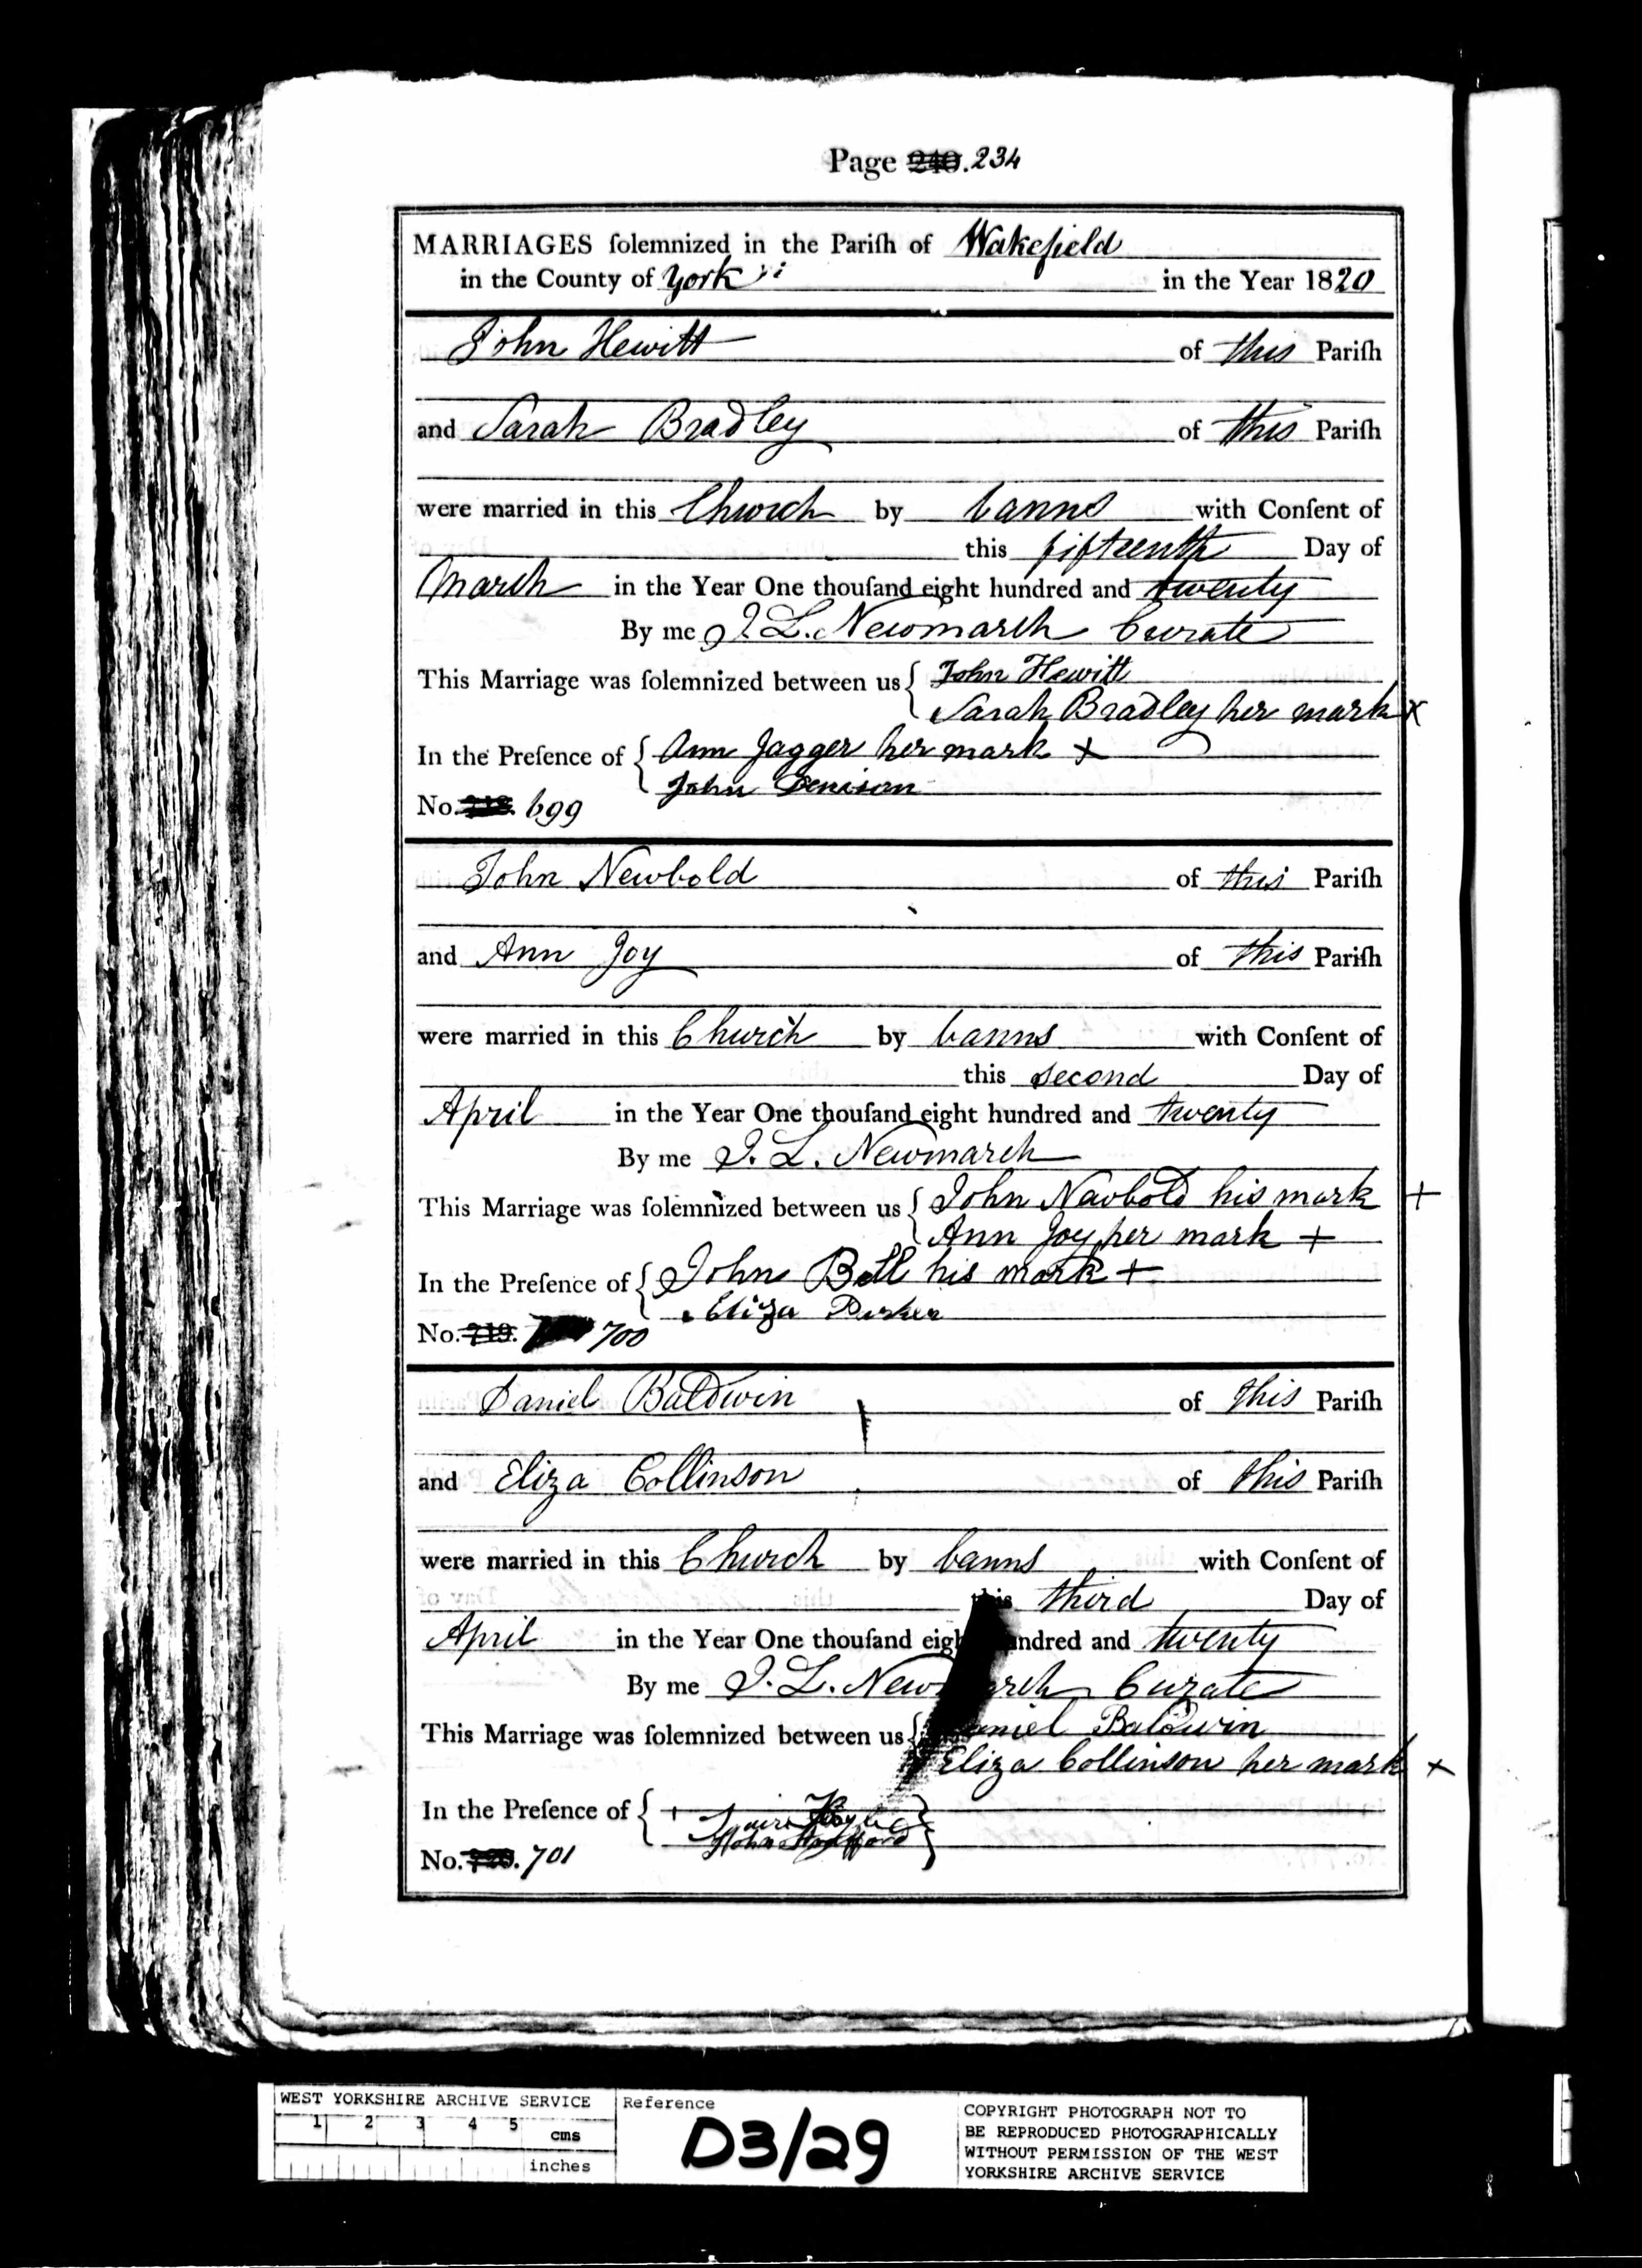 Page 240. 234
MARRIAGES ſolemnized in the Pariſh of Wakefield
in the County of York in the Year 1820
John Hewitt of this Pariſh
and Sarah Bradley of this Pariſh
were married in this Church by banns with Conſent of
this fifteenth Day of
March in the Year One thouſand eight hundred and twenty
By me J. L. Newmarch Curate
This Marriage was ſolemnized between us { John Hewitt
Sarah Bradley her mark X
In the Preſence of { Ann Jagger her mark X
John Denison
No. 718. 699
John Newbold of this Pariſh
and Ann Joy of this Pariſh
were married in this Church by banns with Conſent of
this second Day of
April in the Year One thouſand eight hundred and twenty
By me J. L. Newmarch
This Marriage was ſolemnized between us { John Newbold his mark +
Ann Joy her mark +
In the Preſence of { John Bell his mark +
Eliza Parker
No. 719. 700
Daniel Baldwin of this Pariſh
and Eliza Collinson of this Pariſh
were married in this Church by banns with Conſent of
this third Day of
April in the Year One thouſand eight hundred and twenty
By me J. L. Newmarch Curate
This Marriage was ſolemnized between us { Daniel Baldwin
Eliza Collinson her mark +
In the Preſence of {
John
No. 720. 701
WEST YORKSHIRE ARCHIVE SERVICE
1 2 3 4 5 cms
inches
Reference
D3/29
COPYRIGHT PHOTOGRAPH NOT TO
BE REPRODUCED PHOTOGRAPHICALLY
WITHOUT PERMISSION OF THE WEST
YORKSHIRE ARCHIVE SERVICE